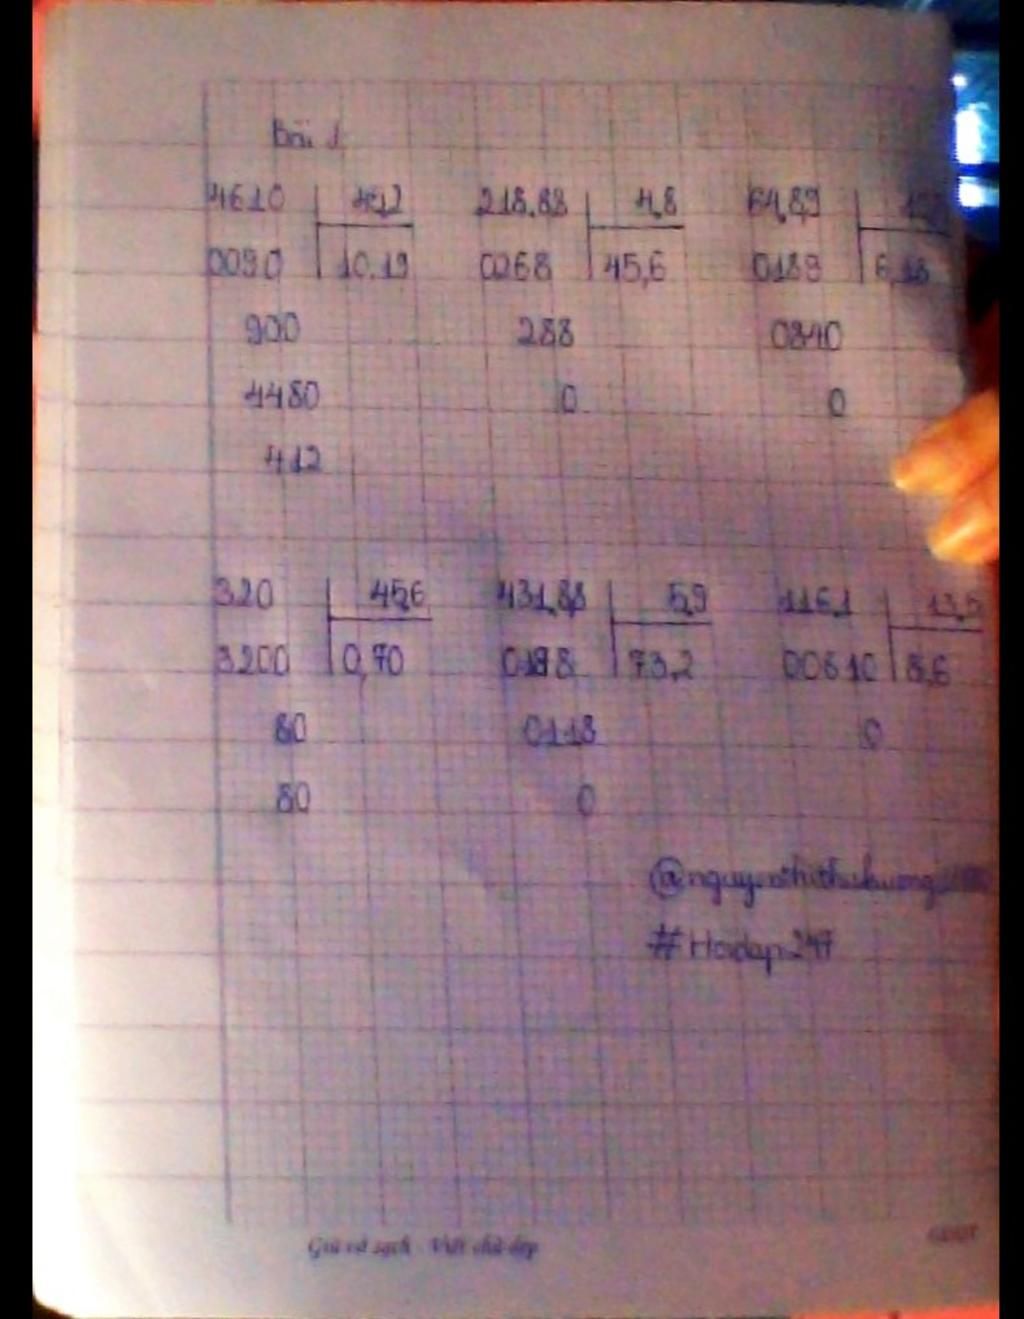 Bài 1
4610 218,88 4,8 64,89
0090 10,19 0268 45,6 0189
900 288 0840
4480 0 0
412
320 45,6 431,88 5,9 116,1 13,5
3200 0,70 0188 73,2 00810 8,6
80 0118 0
80 0
#Hoidap247
Giữ vở sạch Viết chữ đẹp